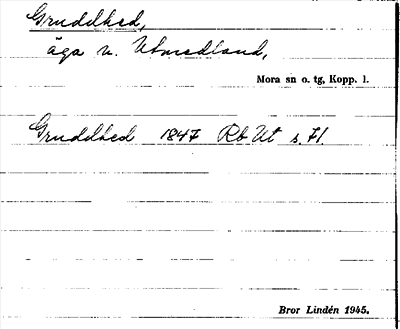 Gruddhed,
äga n. Utmedland,
Mora sn o. tg, Kopp. l.
Gruddhed 1847 Rb Ut s. 71.
Bror Lindén 1945.